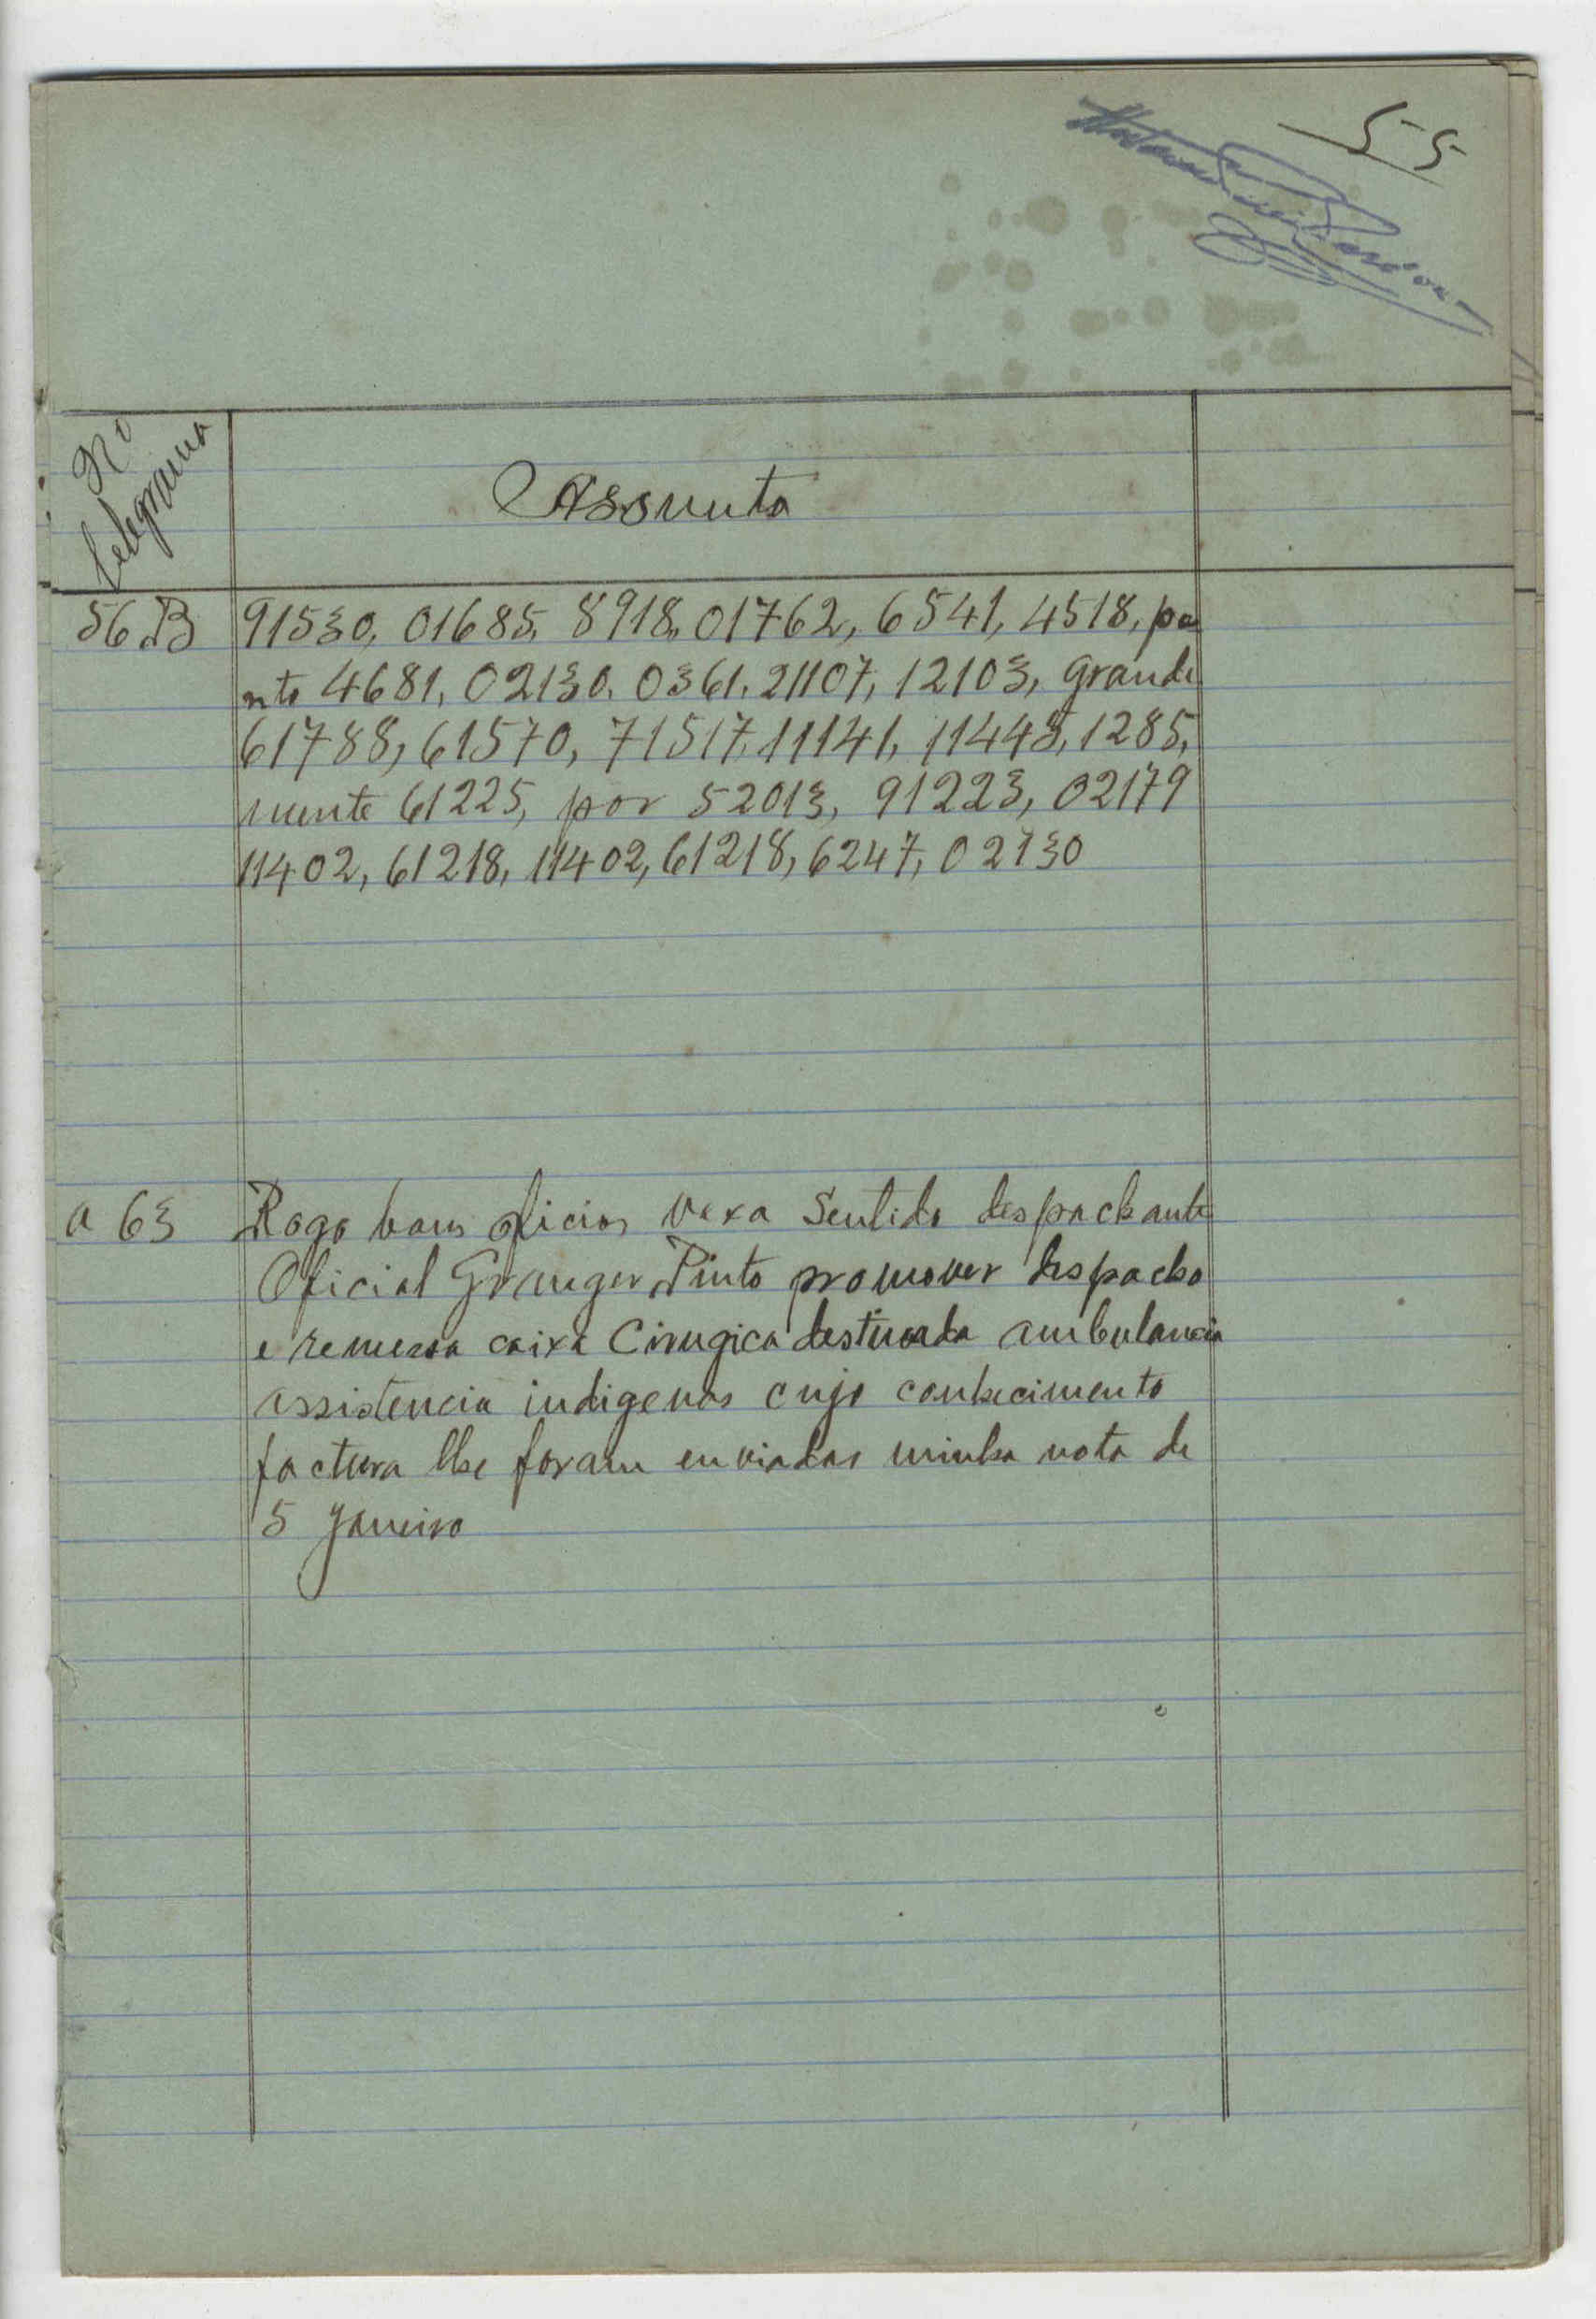 55
Nº
telegrama
Assunto
56 B 91530, 01685, 8918, 01762, 6541, 4518, po
nto 4681, 02130, 0361, 21107, 12103, grande
61788, 61570, 71517, 11141, 11448, 1285,
mente 61225, por 52013, 91223, 02179
11402, 61218, 11402, 61218, 6247, 02130
a 63 Rogo bons oficios vexa Sentido despachante
Oficial Granger Pinto promover despacho
e remessa caixa Cirugica destinada ambulancia
assistencia indigenas cujo conhecimento
factura lhe foram enviadas minha nota de
5 Janeiro